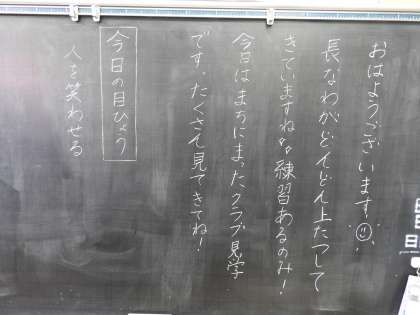 おはようございます!
長なわがどんどん上たつして
きていますね♪練習あるのみ!
今日はまちにまったクラブ見学
です。たくさん見てきてね!
今日の目ひょう
人を笑わせる